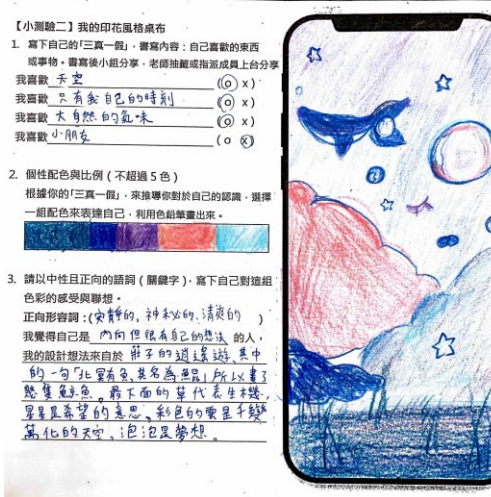 【小測驗二】我的印花風格桌布
1. 寫下自己的「三真一假」,書寫內容:自己喜歡的東西
或事物。書寫後小組分享,老師抽籤或指派成員上台分享
我喜歡 天空 (o x)
我喜歡 只有我自己的時刻 (o x)
我喜歡 大自然的氣味 (o x)
我喜歡 小朋友 (o x)
2. 個性配色與比例(不超過 5 色)
根據你的「三真一假」,來推導你對於自己的認識,選擇
一組配色來表達自己,利用色鉛筆畫出來。
3. 請以中性且正向的語詞(關鍵字),寫下自己對這組
色彩的感受與聯想。
正向形容詞:(安靜的, 神秘的、清爽的 )
我覺得自己是 內向但很有自己的想法 的人,
我的設計想法來自於 莊子的逍遙遊,其中
的一句「北冥有魚,其名為鯤」所以畫了
幾隻鯨魚。最下面的草代表生機,
星星是希望的意思,彩色的雲是千變
萬化的天空,泡泡是夢想。